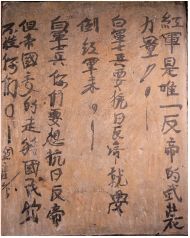 紅軍是唯一反帝的武裝
力量！
白軍士兵要抗日反帝就要
倒紅軍来！
白軍士兵你們要想抗日反帝
但 國 的走 國民党
不准你們！